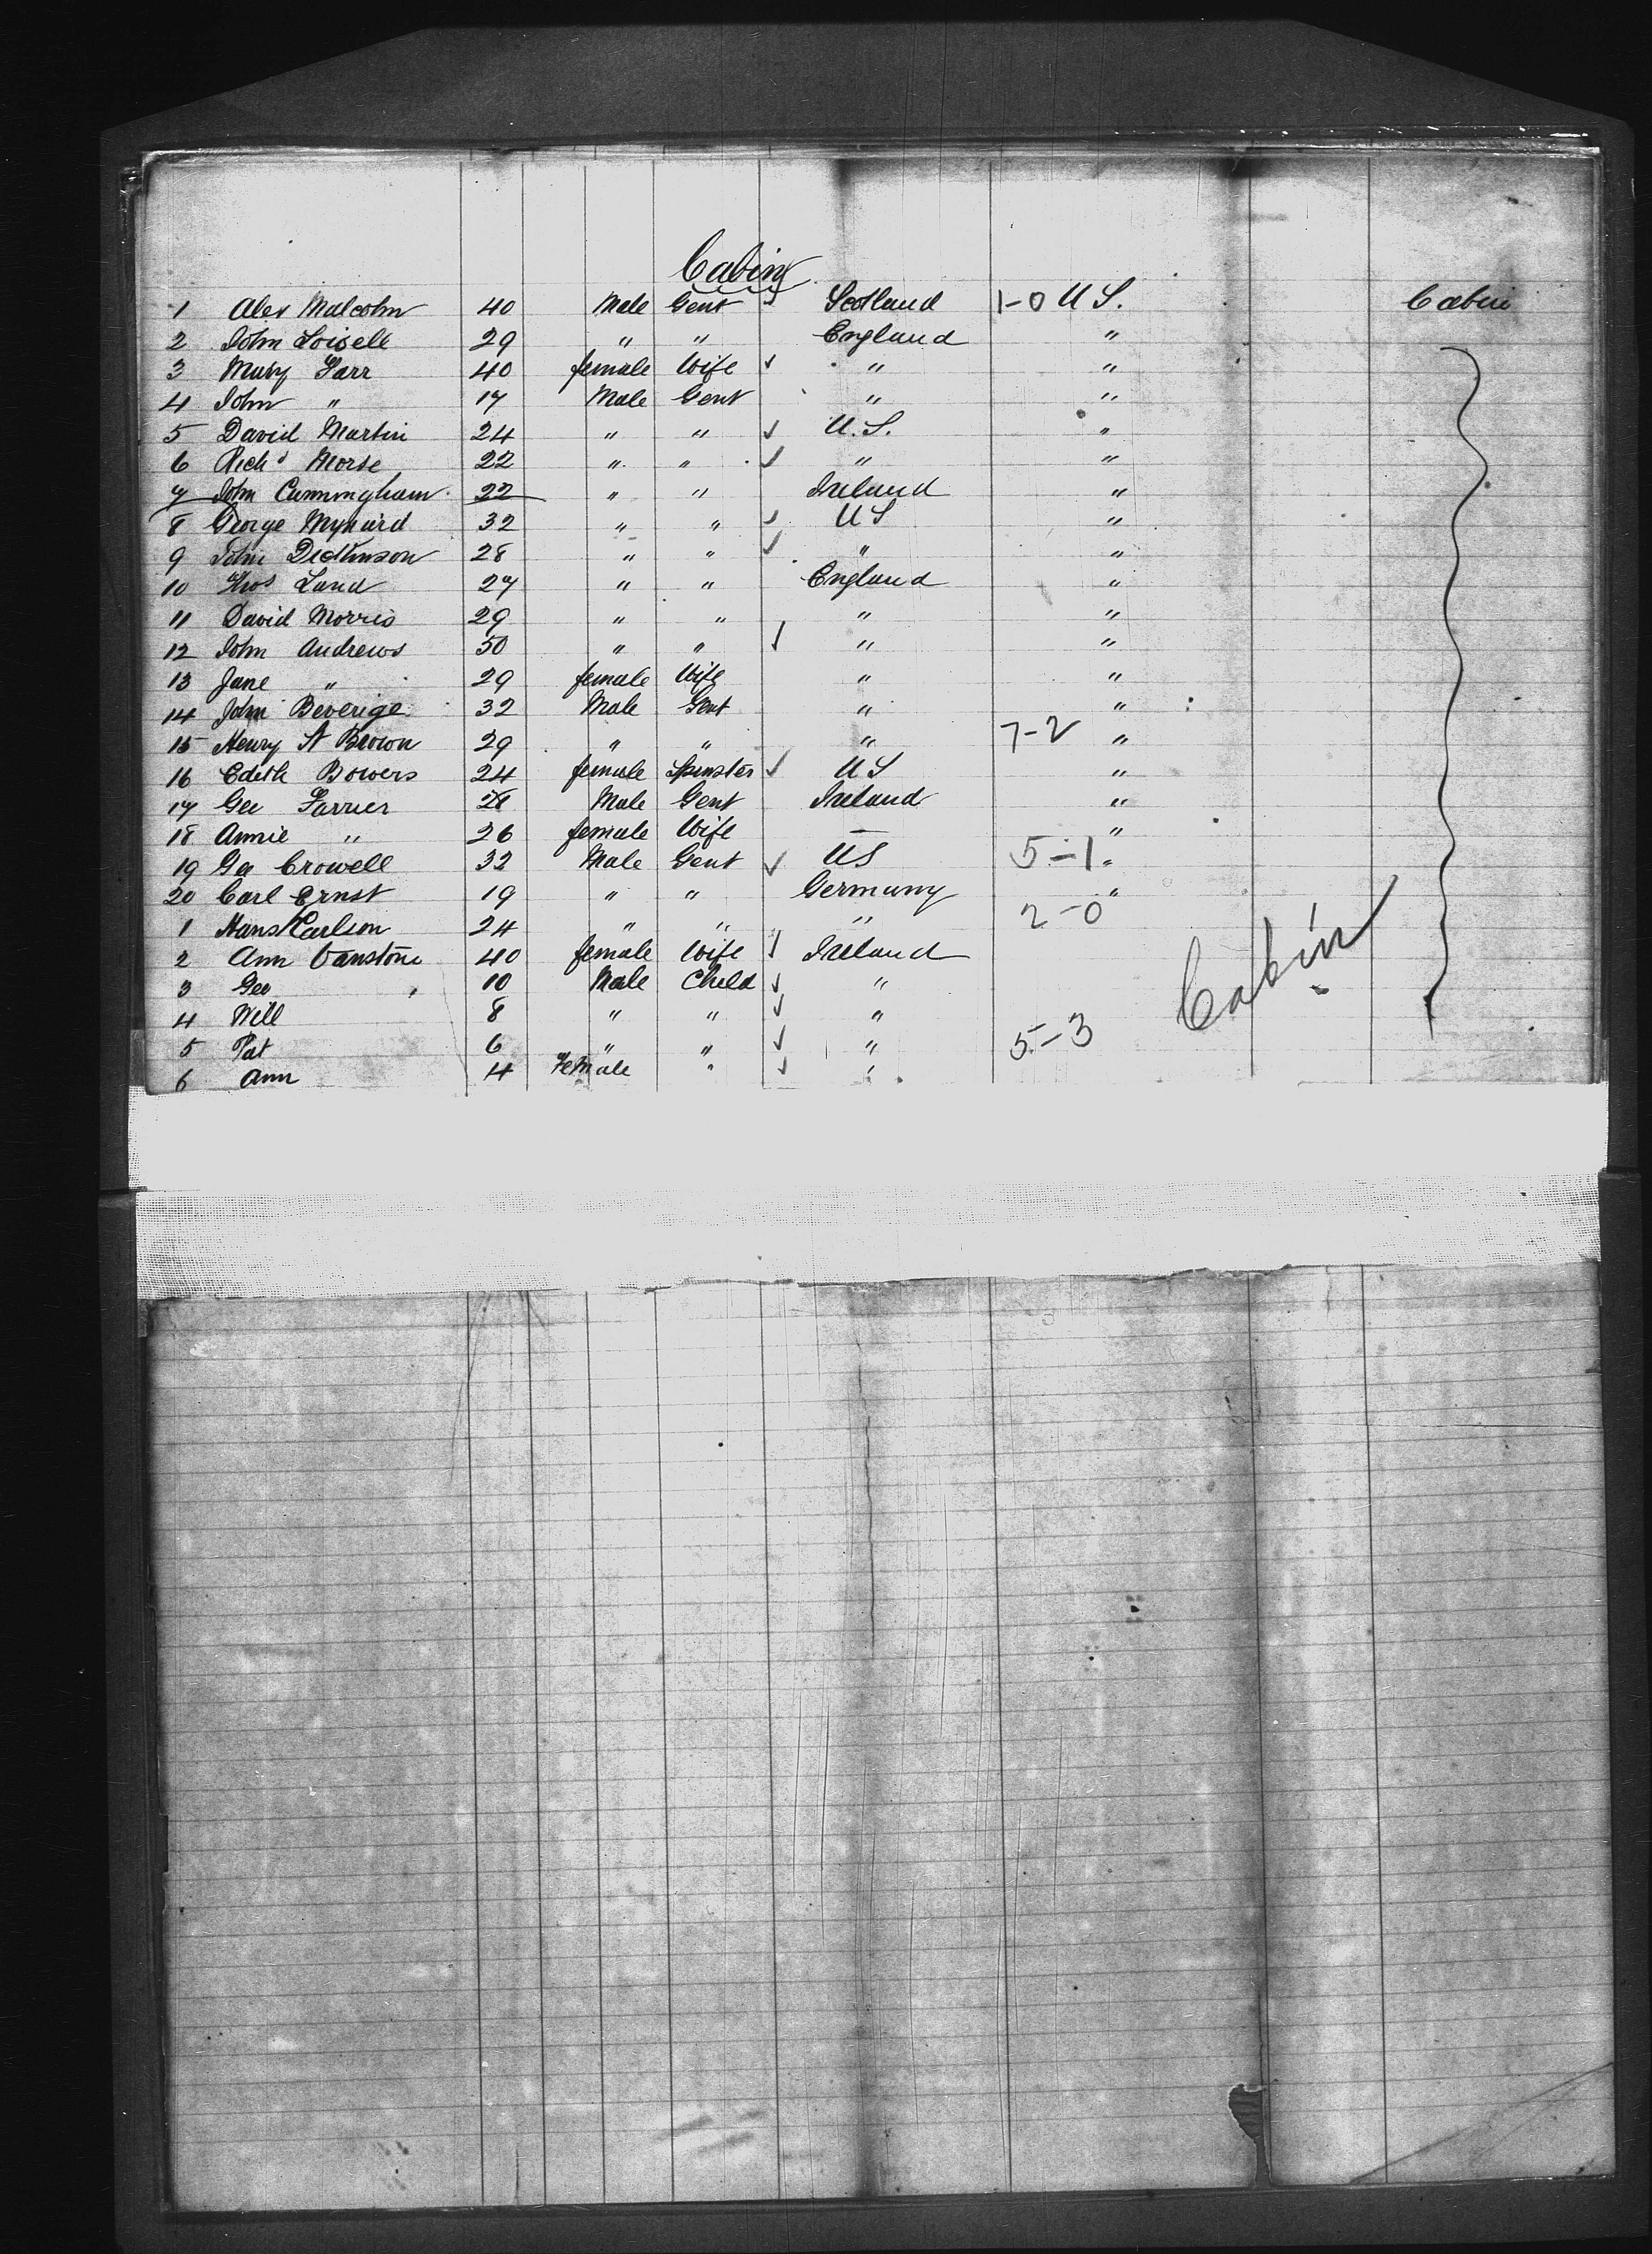 Cabin
1 Alex Malcolm 40 Male Gent ✓ Scotland 1-0 U S. Cabin
2 John Loisell 29 " " England "
3 Mary Farr 40 female Wife ✓ " "
4 John " 17 Male Gent " "
5 David Martin 24 " " ✓ U.S. "
6 Richd Morse 22 " " ✓ " "
7 John Cunningham 22 " " Ireland "
8 George Mynard 32 " " ✓ US "
9 John Dedlinson 28 " " ✓ " "
10 Thos Land 27 " " England "
11 David Morris 29 " " " "
12 John Andrews 50 " " ✓ " "
13 Jane " 29 female Wife " "
14 John Beverige 32 Male Gent " "
15 Henry St Brown 29 " " " 7-2 "
16 Edith Bowers 24 female Spinster ✓ US "
17 Geo Farrier 28 Male Gent Ireland "
18 Annie " 26 female Wife — "
19 Geo Crowell 32 Male Gent ✓ US 5-1 "
20 Carl Ernst 19 " " Germany "
1 Hans Carlson 24 " " " 2-0
2 Ann Vanstone 40 female Wife ✓ Ireland
3 Geo 10 Male Child ✓ " Cabin
4 Will 8 " " ✓ "
5 Pat 6 " " ✓ " 5-3
6 Ann 4 Female " ✓ "